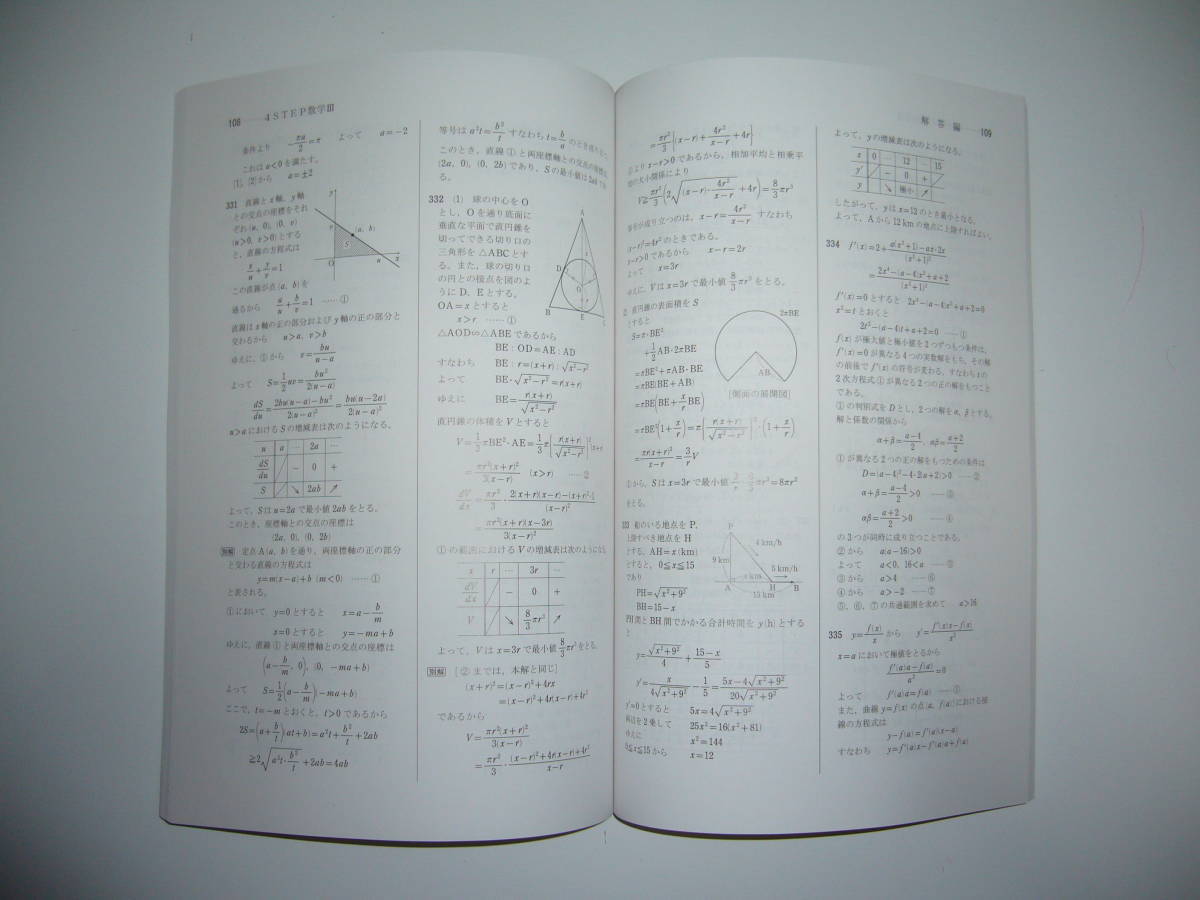 108 4STEP数学Ⅲ
条件より πa/2=π よって a=-2
これは a<0 を満たす。
(1), (2)から a=±2
331 直線と x 軸，y 軸
との交点の座標をそれ
ぞれ (u, 0), (0, v)
(u>0, v>0) とする
と，直線の方程式は
x/u+y/v=1
この直線が点 (a, b) を
通るから a/u+b/v=1 ……①
y
v
(a, b)
S
O
u
x
直線は x 軸の正の部分および y 軸の正の部分と
交わるから u>a, v>b
ゆえに，①から v=bu/(u-a)
よって S=1/2uv=bu²/2(u-a)
dS/du=2bu(u-a)-bu²/2(u-a)²=bu(u-2a)/2(u-a)²
u>a における S の増減表は次のようになる。
u a … 2a …
dS/du - 0 +
S ↘ 2ab ↗
よって，S は u=2a で最小値 2ab をとる。
このとき，座標軸との交点の座標は
(2a, 0), (0, 2b)
別解 定点 A(a, b) を通り，両座標軸の正の部分
と交わる直線の方程式は
y=m(x-a)+b (m<0) ……①
と表される。
①において y=0 とすると x=a-b/m
x=0 とすると y=-ma+b
ゆえに，直線①と両座標軸との交点の座標は
(a-b/m, 0), (0, -ma+b)
よって S=1/2(a-b/m)(-ma+b)
ここで，t=-m とおくと，t>0 であるから
2S=(a+b/t)(at+b)=a²t+b²/t+2ab
≧2√(a²t・b²/t)+2ab=4ab
等号は a²t=b²/t すなわち t=b/a のとき成り立つ。
このとき，直線①と両座標軸との交点の座標は
(2a, 0), (0, 2b) であり，S の最小値は 2ab であ
る。
332 (1) 球の中心を O
とし，O を通り底面に
垂直な平面で直円錐を
切ってできる切り口の
三角形を △ABC とす
る。また，球の切り口
の円との接点を図のよ
うに D, E とする。
OA=x とすると
x>r ……①
A
D
O
B
E
C
△AOD∽△ABE であるから
BE : OD=AE : AD
すなわち BE : r=(x+r) : √(x²-r²)
よって BE・√(x²-r²)=r(x+r)
ゆえに BE=r(x+r)/√(x²-r²)
直円錐の体積を V とすると
V=1/3πBE²・AE=1/3π{r(x+r)/√(x²-r²)}²(x+r)
=πr²(x+r)²/3(x-r) (x>r) ……②
dV/dx=πr²/3・2(x+r)(x-r)-(x+r)²・1/(x-r)²
=πr²(x+r)(x-3r)/3(x-r)²
①の範囲における V の増減表は次のようになる。
x r … 3r …
dV/dx - 0 +
V ↘ 8/3πr³ ↗
よって，V は x=3r で最小値 8/3πr³ をとる。
別解 [②までは，本解と同じ]
(x+r)²=(x-r)²+4rx
=(x-r)²+4r(x-r)+4r²
であるから
V=πr²(x+r)²/3(x-r)
=πr²/3・(x-r)²+4r(x-r)+4r²/x-r
解答編 109
=πr²/3{(x-r)+4r²/(x-r)+4r}
①より x-r>0 であるから，相加平均と相乗平
均の大小関係により
V≧πr²/3(2√((x-r)・4r²/(x-r))+4r)=8/3πr³
等号が成り立つのは，x-r=4r²/(x-r) すなわち
(x-r)²=4r² のときである。
x-r>0 であるから x-r=2r
よって x=3r
ゆえに，V は x=3r で最小値 8/3πr³ をとる。
(2) 直円錐の表面積を S
とすると
S=π・BE²
+1/2AB・2πBE
=πBE²+πAB・BE
=πBE(BE+AB)
=πBE(BE+x/rBE)
2πBE
AB
[側面の展開図]
=πBE²(1+x/r)=π{r(x+r)/√(x²-r²)}²・(1+x/r)
=πr(x+r)²/x-r=3/rV
(1)から，S は x=3r で最小値 3/r・8/3πr³=8πr²
をとる。
333 船のいる地点を P,
上陸すべき地点を H
とする。AH=x (km)
とすると，0≦x≦15
であり
PH=√(x²+9²)
BH=15-x
P
4 km/h
9 km
5 km/h
x km
A
H
B
15 km
PH 間と BH 間でかかる合計時間を y (h) とする
と
y=√(x²+9²)/4+15-x/5
y'=x/4√(x²+9²)-1/5=5x-4√(x²+9²)/20√(x²+9²)
y'=0 とすると 5x=4√(x²+9²)
両辺を 2 乗して 25x²=16(x²+81)
ゆえに x²=144
0≦x≦15 から x=12
よって，y の増減表は次のようになる。
x 0 … 12 … 15
y' - 0 +
y ↘ 極小 ↗
したがって，y は x=12 のとき最小となる。
よって，A から 12 km の地点に上陸すればよい。
334 f'(x)=2+a(x²+1)-ax・2x/(x²+1)²
=2x⁴-(a-4)x²+a+2/(x²+1)²
f'(x)=0 とすると 2x⁴-(a-4)x²+a+2=0
x²=t とおくと
2t²-(a-4)t+a+2=0 ……①
f(x) が極大値と極小値を 2 つずつもつ条件は，
f'(x)=0 が異なる 4 つの実数解をもち，その解
の前後で f'(x) の符号が変わる，すなわち t の
2 次方程式①が異なる 2 つの正の解をもつこと
である。
①の判別式を D とし，2 つの解を α, β とする。
解と係数の関係から
α+β=a-4/2, αβ=a+2/2
①が異なる 2 つの正の解をもつための条件は
D=(a-4)²-4・2(a+2)>0 ……②
α+β=a-4/2>0 ……③
αβ=a+2/2>0 ……④
の 3 つが同時に成り立つことである。
②から a(a-16)>0
よって a<0, 16<a ……⑤
③から a>4 ……⑥
④から a>-2 ……⑦
⑤, ⑥, ⑦の共通範囲を求めて a>16
335 y=f(x)/x から y'=f'(x)x-f(x)/x²
x=a において極値をとるから
f'(a)a-f(a)/a²=0
よって f'(a)a=f(a) ……①
また，曲線 y=f(x) の点 (a, f(a)) における接
線の方程式は
y-f(a)=f'(a)(x-a)
すなわち y=f'(a)x-f'(a)a+f(a)